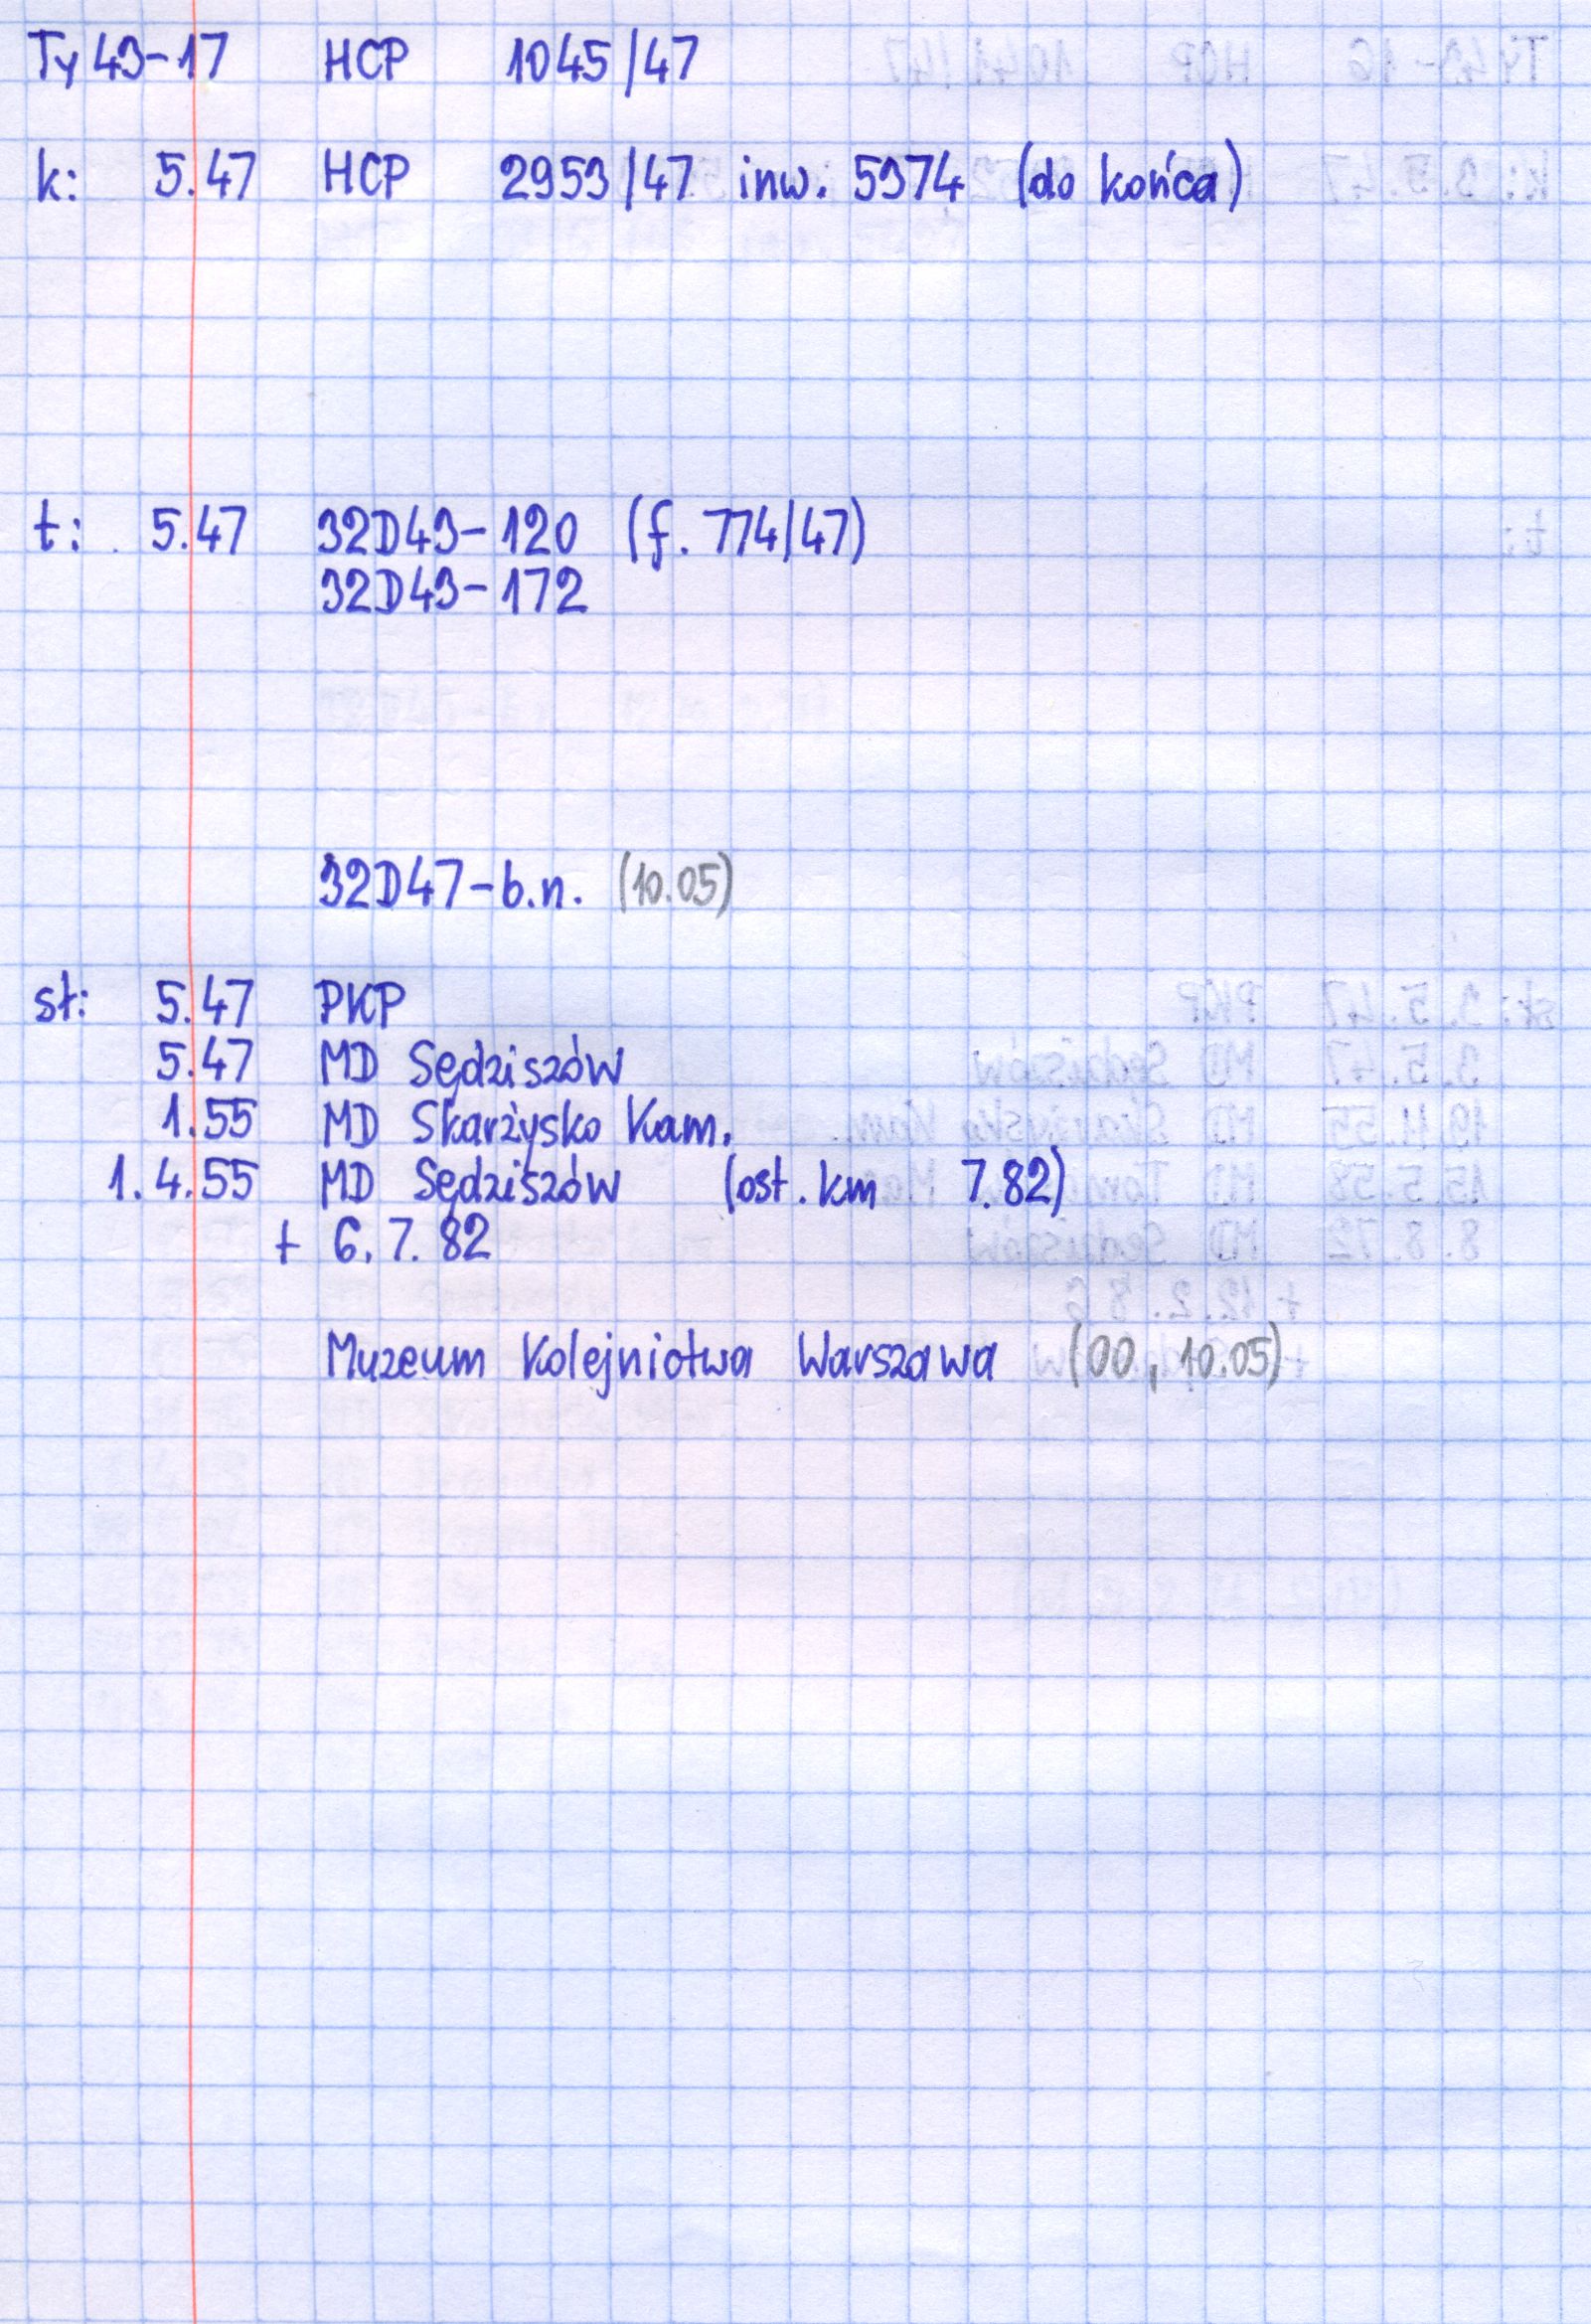 Ty43-17 HCP 1045/47
k: 5.47 HCP 2953/47 inw. 5374 (do końca)
t: 5.47 32D43-120 (f. 774/47)
32D43-172
32D47-b.n. (10.05)
st: 5.47 PKP
5.47 MD Sędziszów
1.55 MD Skarżysko Kam.
1.4.55 MD Sędziszów (ost. km 7.82)
+ 6.7.82
Muzeum Kolejnictwa Warszawa (00, 10.05)